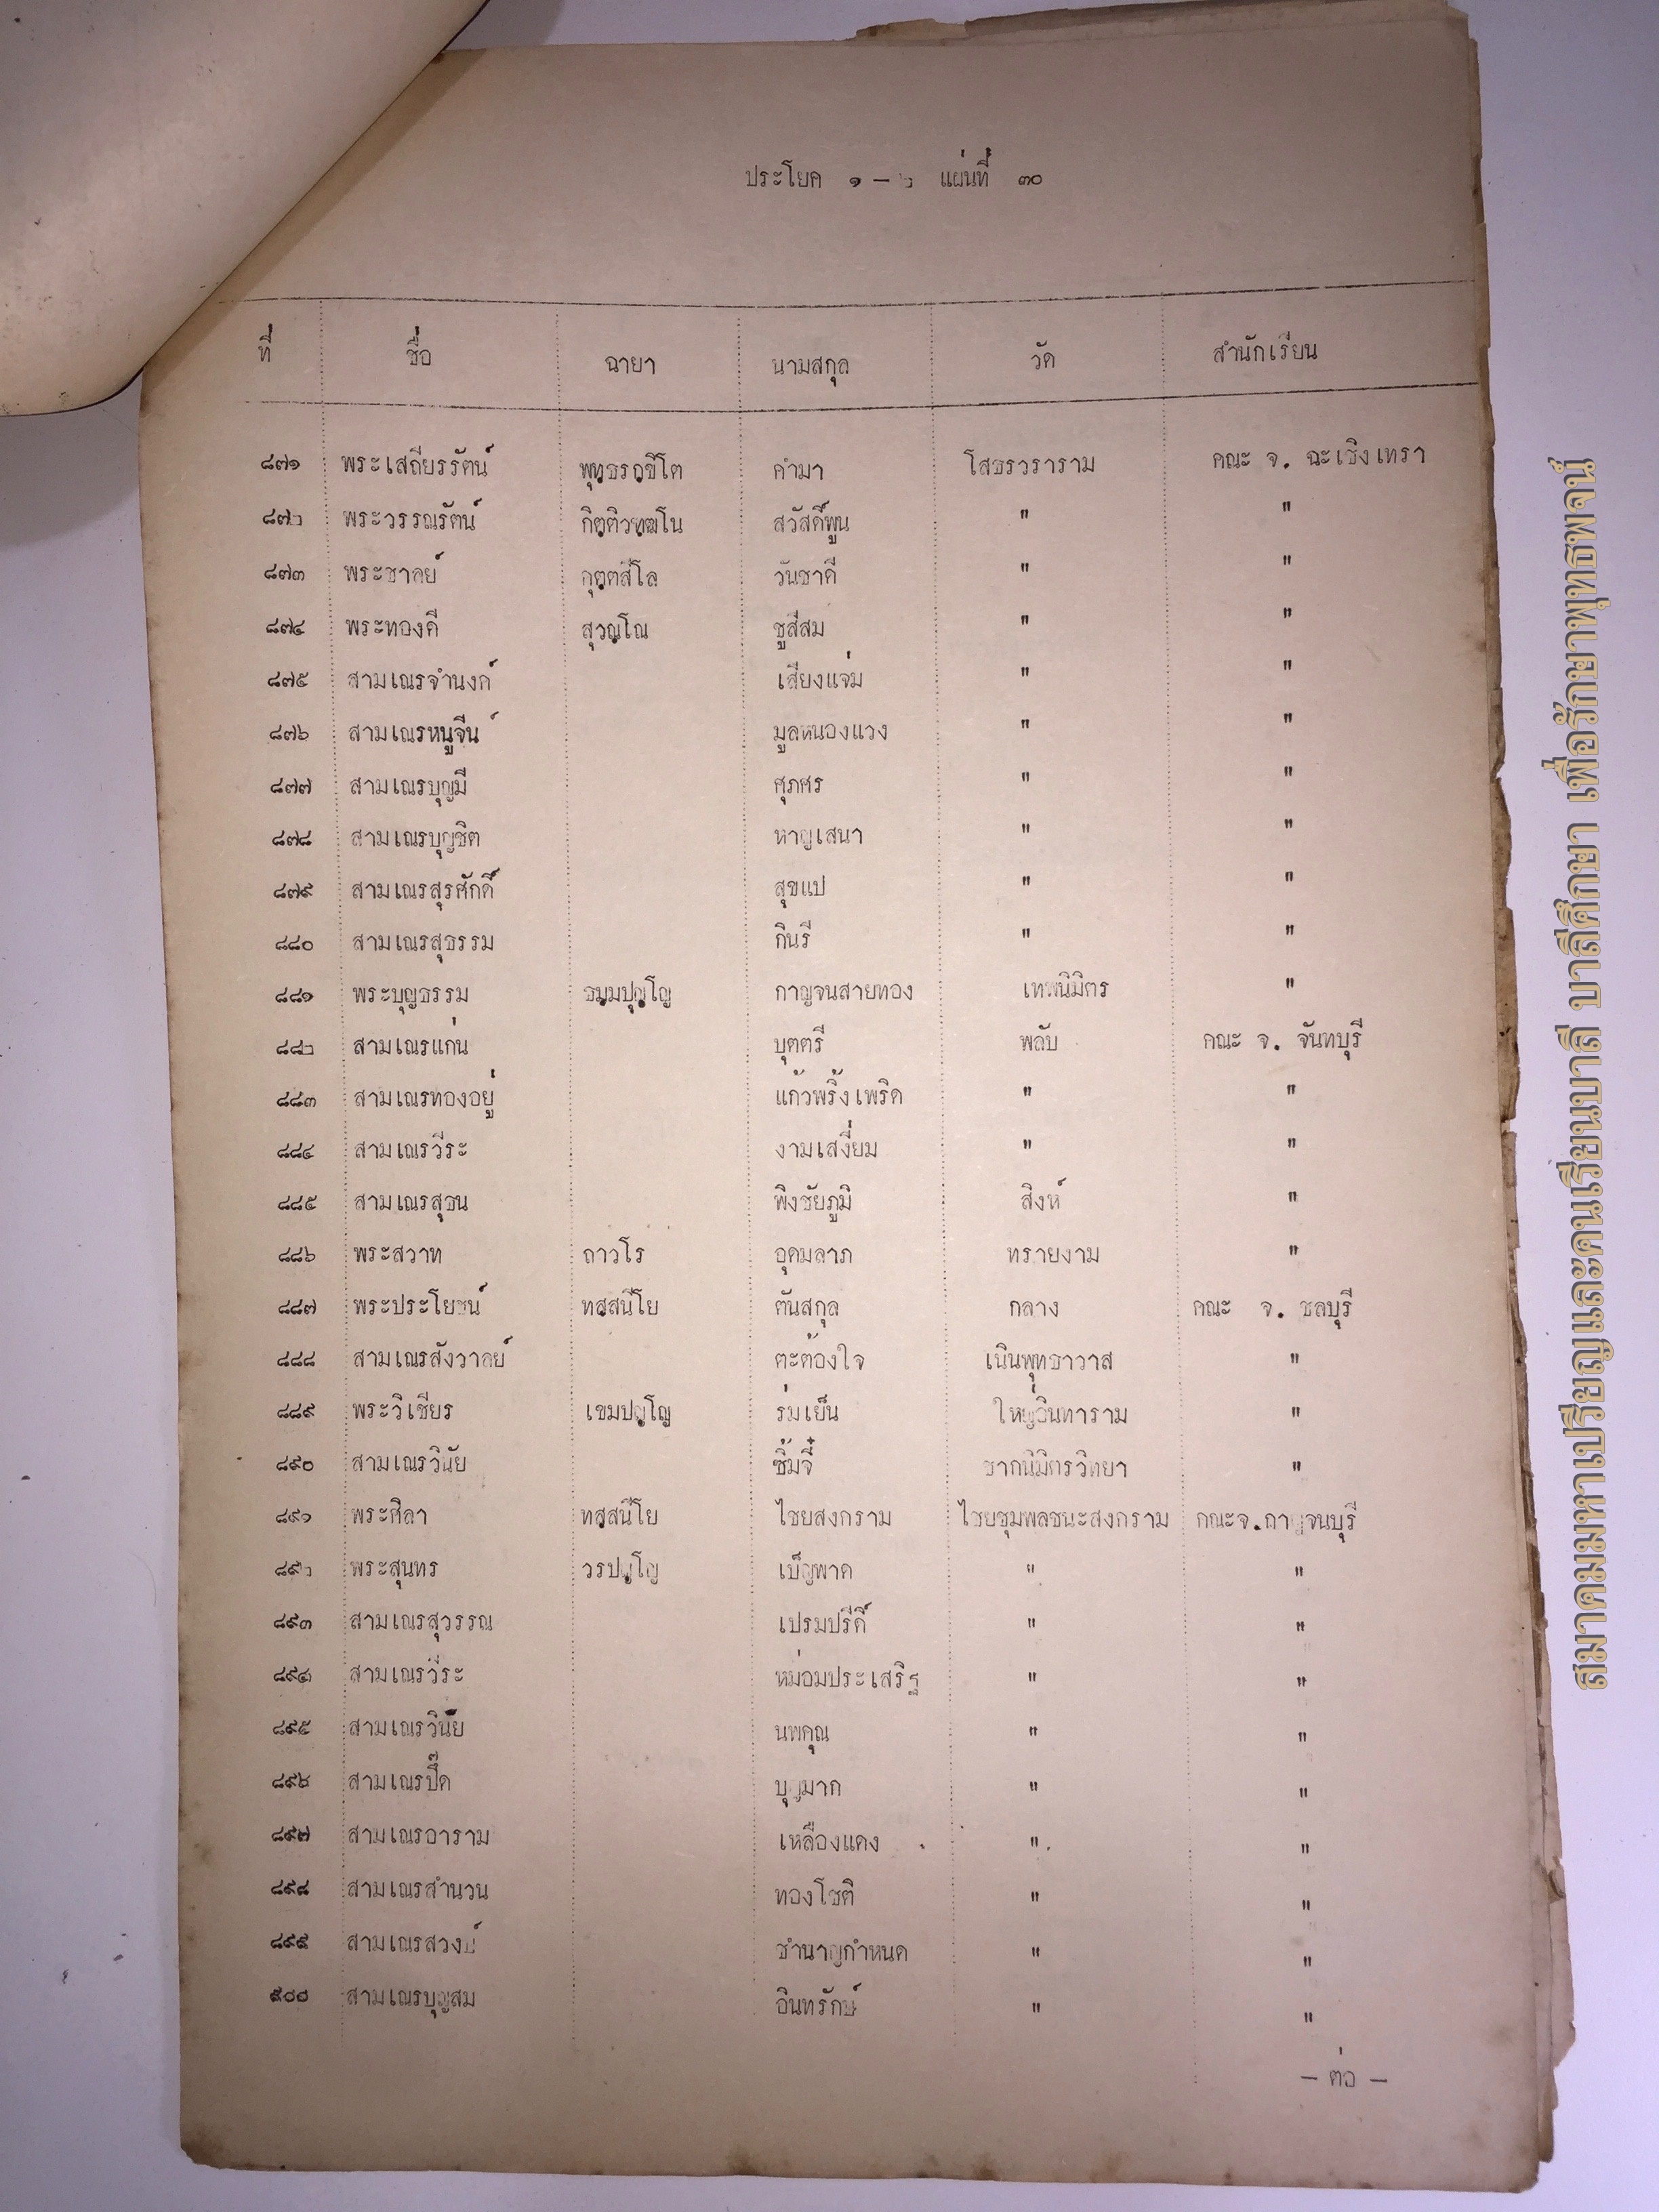 ประโยค ๑ – ๒ แผ่นที่ ๓๐
ที่ ชื่อ ฉายา นามสกุล วัด สำนักเรียน
๘๗๑ พระเสถียรรัตน์ พุทฺธรกฺขิโต คำมา โสธรวราราม คณะ จ. ฉะเชิงเทรา
๘๗๒ พระวรรณรัตน์ กิตฺติวฑฺฒโน สวัสดิ์พูน " "
๘๗๓ พระชาลย์ กุตฺตสีโล วันชาดี " "
๘๗๔ พระทองดี สุวณฺโณ ชูสีสม " "
๘๗๕ สามเณรจำนงค์ เสียงแจ่ม " "
๘๗๖ สามเณรหนูจีน์ มูลหนองแวง " "
๘๗๗ สามเณรบุญมี ศุภศร " "
๘๗๘ สามเณรบุญชิต หาญเสนา " "
๘๗๙ สามเณรสุรศักดิ์ สุขแป " "
๘๘๐ สามเณรสุธรรม กินรี " "
๘๘๑ พระบุญธรรม ธมฺมปุญฺโญ กาญจนสายทอง เทพนิมิตร "
๘๘๒ สามเณรแก่น บุตตรี พลับ คณะ จ. จันทบุรี
๘๘๓ สามเณรทองอยู่ แก้วพริ้งเพริด " "
๘๘๔ สามเณรวีระ งามเสงี่ยม " "
๘๘๕ สามเณรสุธน พิงชัยภูมิ สิงห์ "
๘๘๖ พระสวาท ถาวโร อุดมลาภ ทรายงาม "
๘๘๗ พระประโยชน์ ทสฺสนีโย ตันสกุล กลาง คณะ จ. ชลบุรี
๘๘๘ สามเณรสังวาลย์ ตะต้องใจ เนินพุทธาวาส "
๘๘๙ พระวิเชียร เขมปญฺโญ ร่มเย็น ใหญ่อินทาราม "
๘๙๐ สามเณรวินัย ซิ้มจี๋ ชากนิมิตรวิทยา "
๘๙๑ พระศิลา ทสฺสนีโย ไชยสงกราม ไชยชุมพลชนะสงกราม คณะจ.กาญจนบุรี
๘๙๒ พระสุนทร วรปญฺโญ เบ็ญพาด " "
๘๙๓ สามเณรสุวรรณ เปรมปรีดิ์ " "
๘๙๔ สามเณรวีระ หม่อมประเสริฐ " "
๘๙๕ สามเณรวินัย นพคุณ " "
๘๙๖ สามเณรปึ๊ด บุญมาก " "
๘๙๗ สามเณรอาราม เหลืองแดง " "
๘๙๘ สามเณรสำนวน ทองโชติ " "
๘๙๙ สามเณรสวงษ์ ชำนาญกำหนด " "
๙๐๐ สามเณรบุญสม อินทรักษ์ " "
– ต่อ –
สมาคมมหาเปรียญและคนเรียนบาลี บาลีศึกษา เพื่อรักษาพุทธพจน์